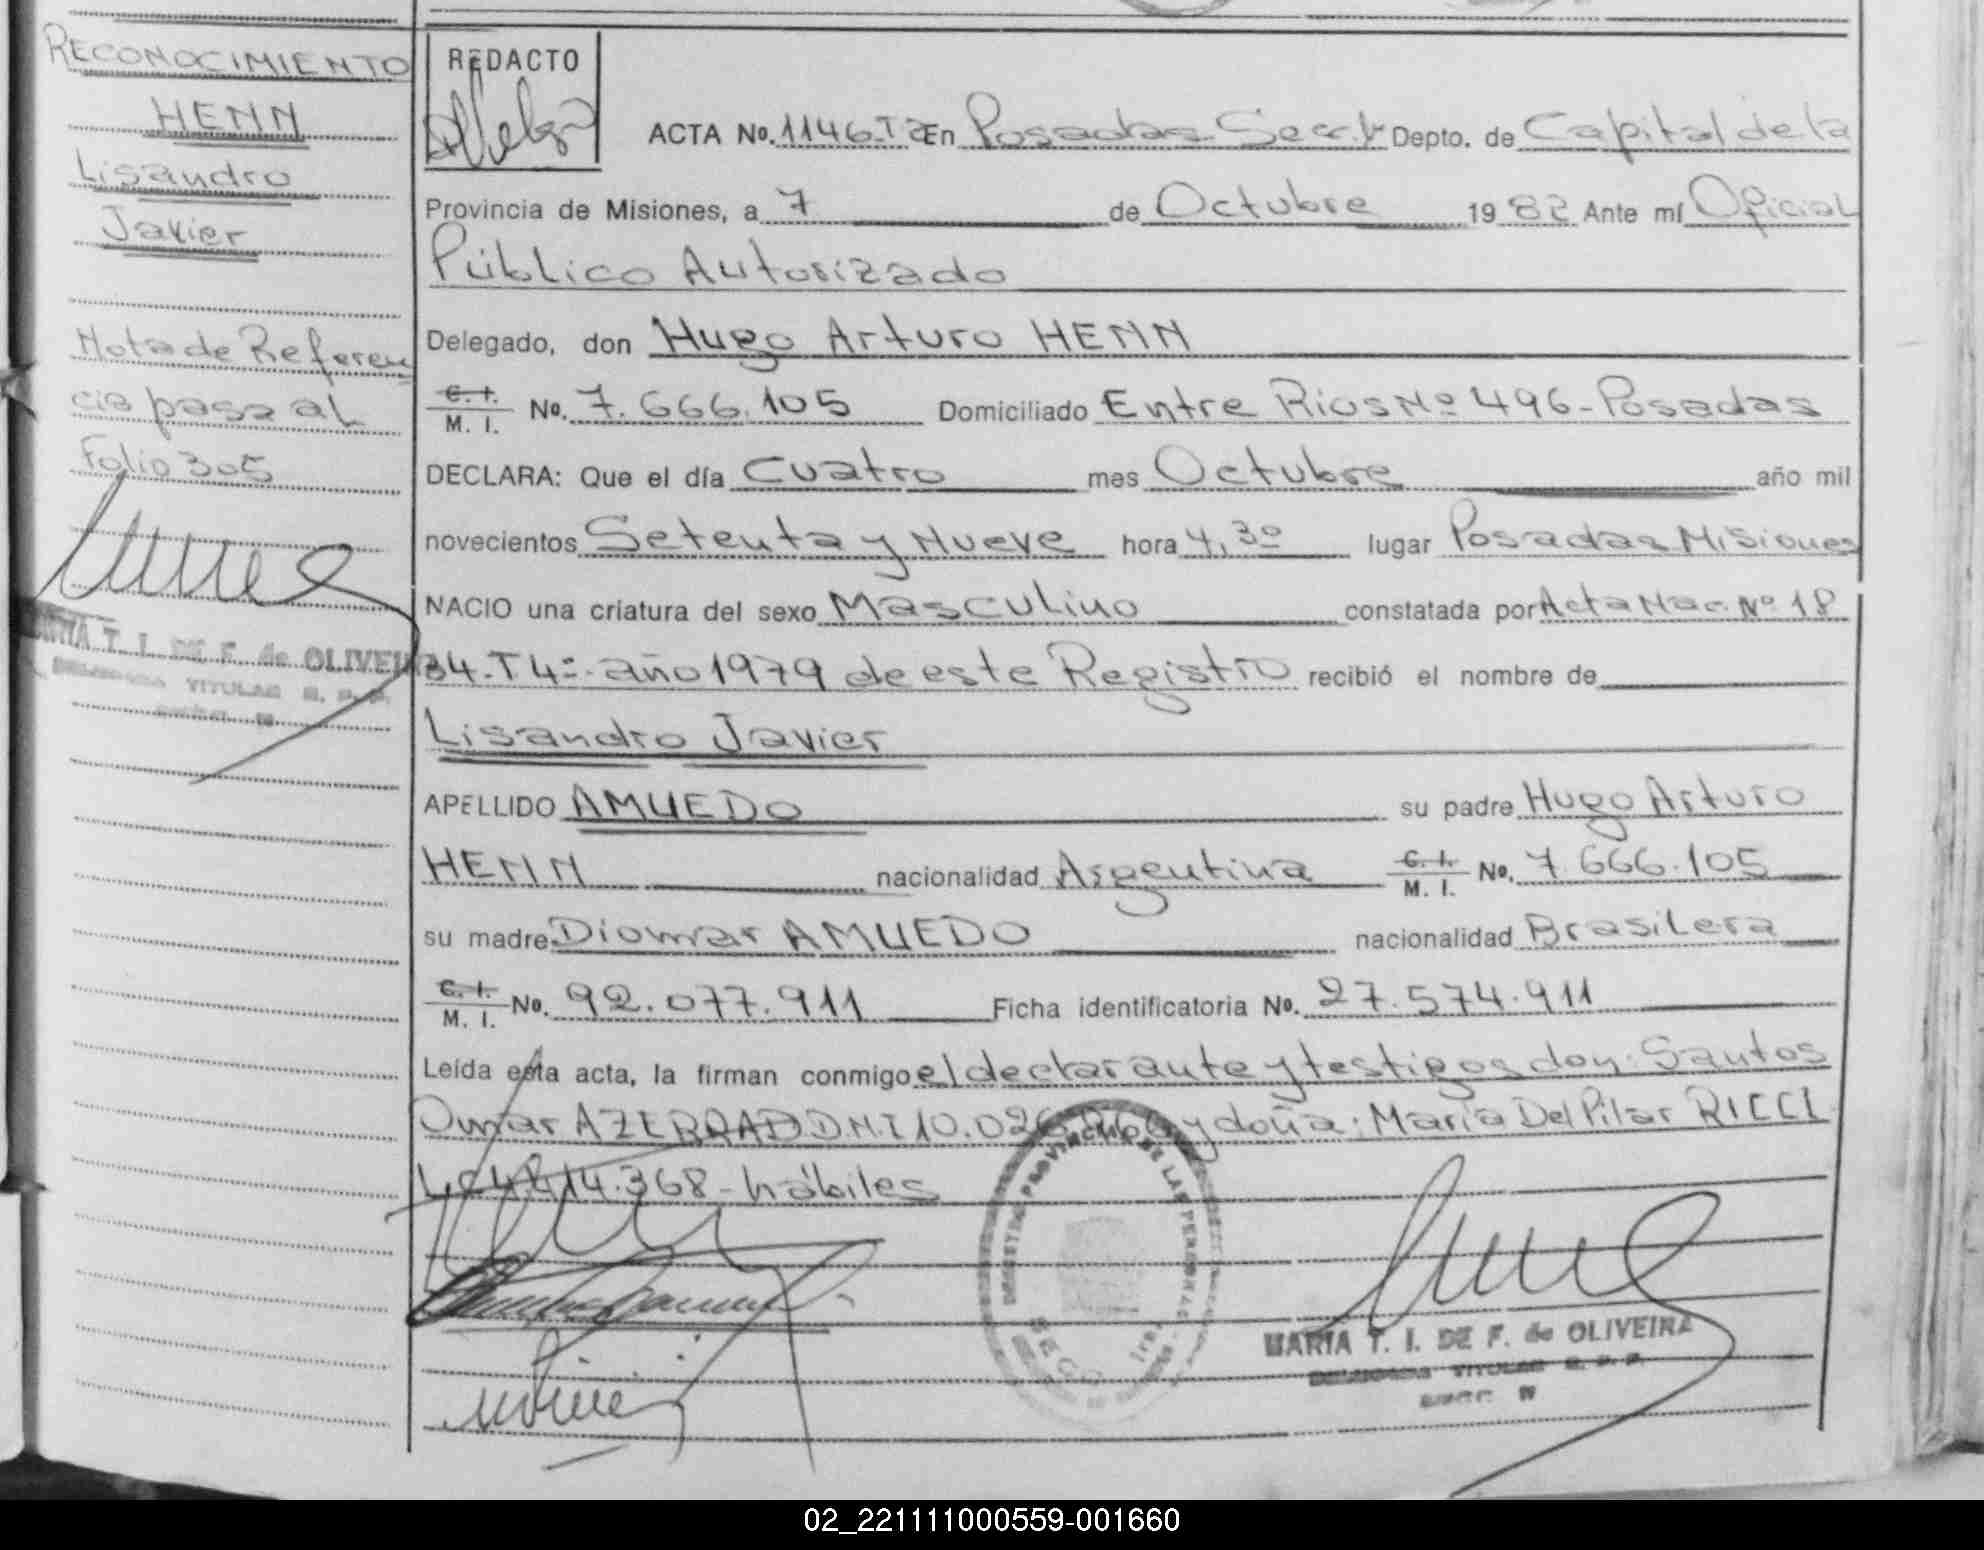 RECONOCIMIENTO
HENN
Lisandro
Javier
Nota de Referen
cia pasa al
Folio 305
MARIA T. I. DE F. de OLIVEIRA
TITULAR
REDACTO
ACTA No. 1146. T 2 En Posadas Secc. 1ª Depto. de Capital de la
Provincia de Misiones, a 7 de Octubre 1982 Ante mí Oficial
Público Autorizado
Delegado, don Hugo Arturo HENN
C. I. M. I. No. 7.666.105 Domiciliado Entre Rios Nº 496-Posadas
DECLARA: Que el día Cuatro mes Octubre año mil
novecientos Setenta y Nueve hora 4,30 lugar Posadas Misiones
NACIO una criatura del sexo Masculino constatada por Acta Nac. Nº 18
34. T 4º. año 1979 de este Registro recibió el nombre de
Lisandro Javier
APELLIDO AMUEDO su padre Hugo Arturo
HENN nacionalidad Argentina C. I. M. I. No. 7.666.105
su madre Diomar AMUEDO nacionalidad Brasilera
C. I. M. I. No. 92.077.911 Ficha identificatoria No. 27.574.911
Leída esta acta, la firman conmigo el declarante y testigos don: Santos
Omar AZERRAD D.N.I 10.026. y doña: Maria Del Pilar RICCI
368-hábiles
PROVINCIAL DE LAS PERSONAS
SECC
MARIA T. I. DE F. de OLIVEIRA
TITULAR
02_221111000559-001660